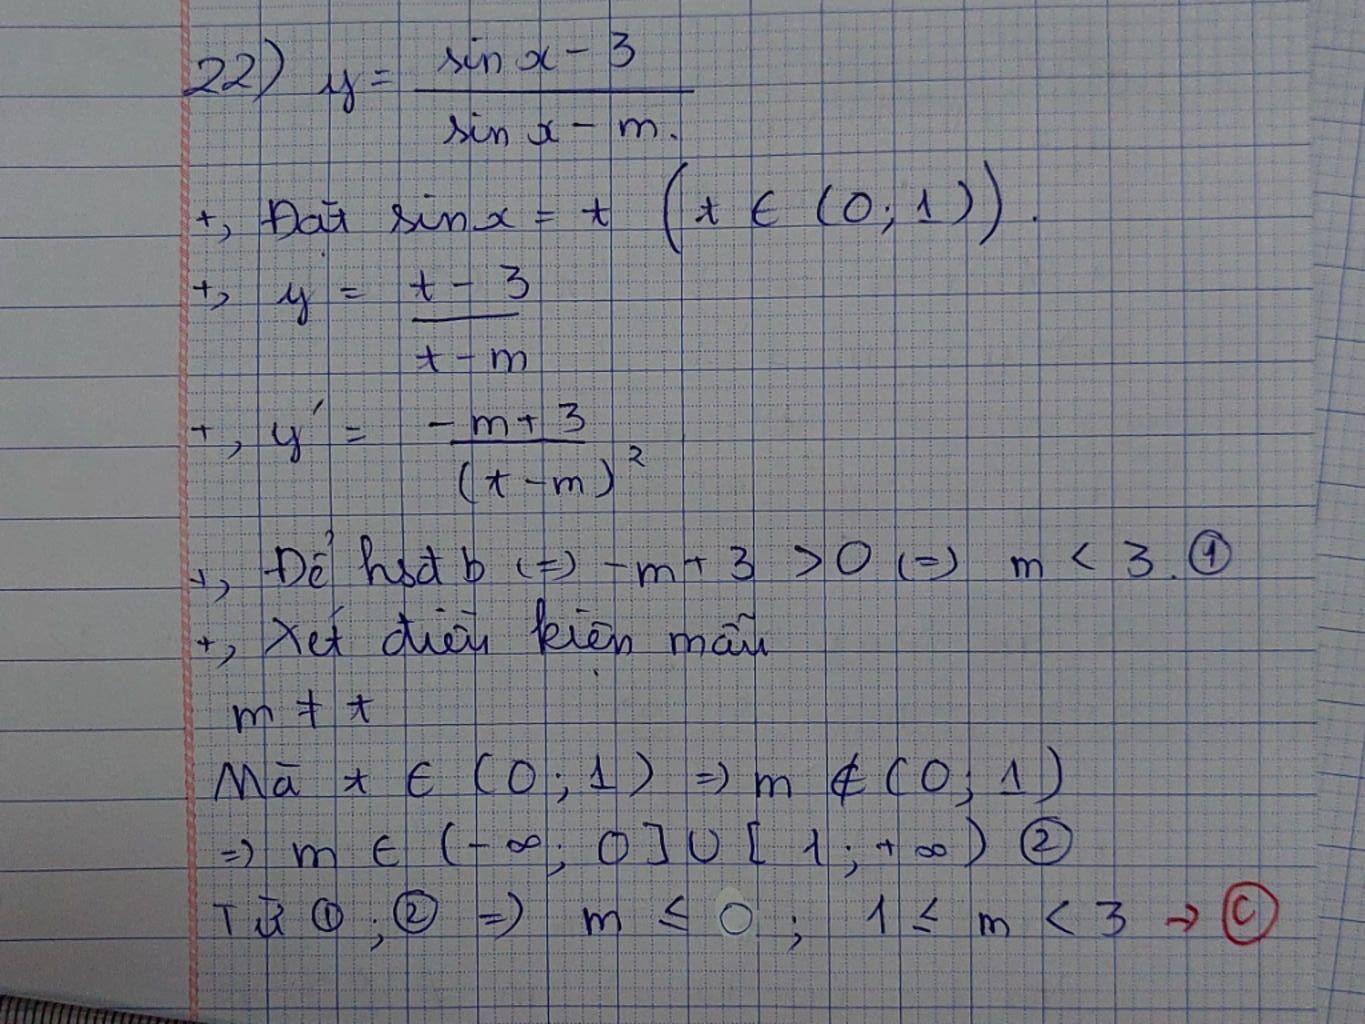 22) y = sin x - 3 / sin x - m.
+, Đặt sin x = t (t ∈ (0; 1)).
+, y = t - 3 / t - m
+, y' = -m + 3 / (t - m)²
+, Để hsđb (=) -m + 3 > 0 (=) m < 3. ①
+, Xét điều kiện mẫu
m ≠ t
Mà t ∈ (0; 1) => m ∉ (0; 1)
=> m ∈ (-∞; 0] ∪ [1; +∞) ②
Từ ①; ② => m ≤ 0; 1 ≤ m < 3 → Ⓒ